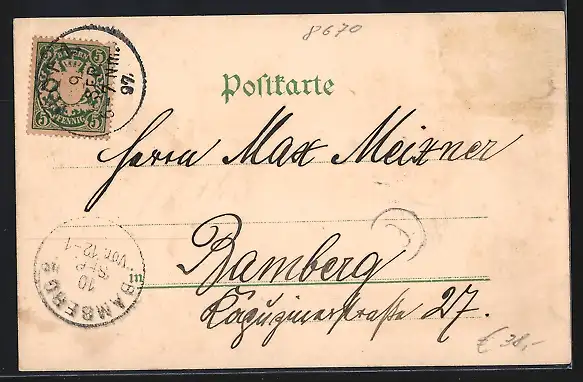 8670
BAYERN
5 5
5 PFENNIG 5
9
SEP.
7 N.M.
97.
Postkarte
Herrn Max Meixner
in Bamberg
Kapuzinerstraße 27.
BAMBERG
10
SEP
VOR. 12-1
€ 38,-